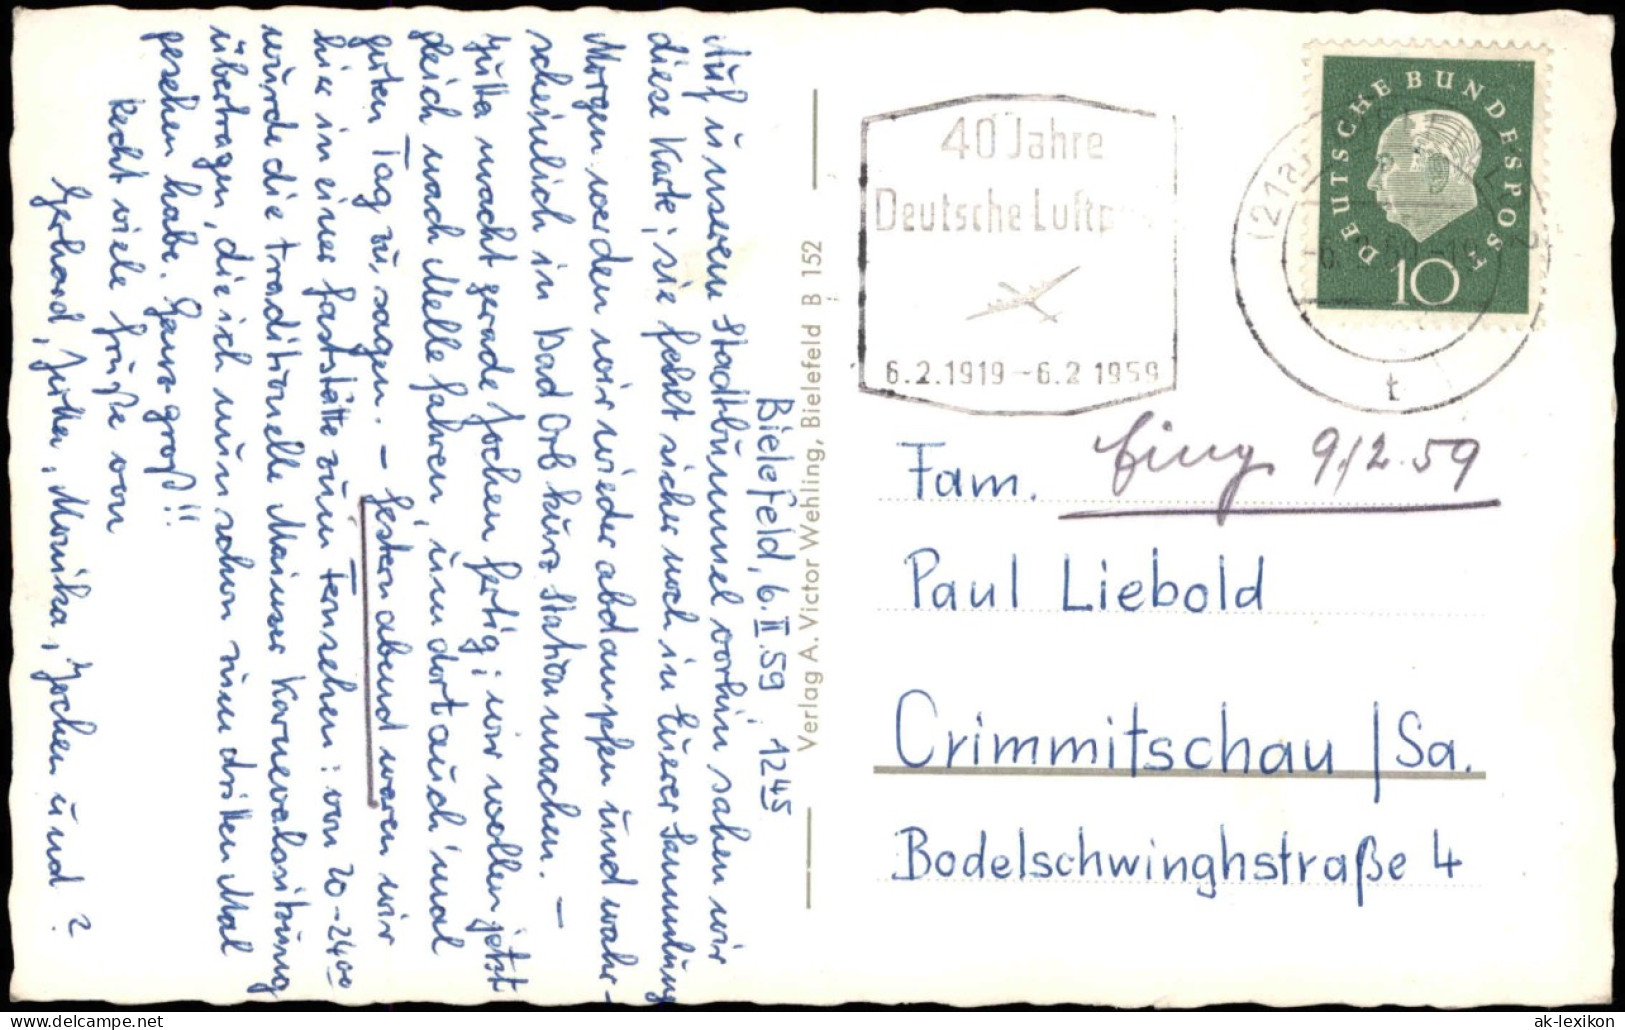 Bielefeld, 6.II.59, 12⁴⁵
Auf unserem Stadtbummel vorhin sahen wir
diese Karte; sie fehlt sicher noch in Eurer Sammlung
Morgen werden wir wieder abdampfen und wahr-
scheinlich in Bad Orb kurz Station machen. –
Jutta macht gerade Jochen fertig; wir wollen jetzt
gleich nach Melle fahren, um dort auch 'mal
guten Tag zu sagen. – Gestern abend waren wir
hier in einer Gaststätte zum Fernsehen: von 20-24⁰⁰
wurde die traditionelle Mainzer Karnevalssitzung
übertragen, die ich nun schon zum dritten Mal
gesehen habe. Ganz groß!!
Recht viele Grüße von
Gerhard, Jutta, Monika, Jochen und ?
Verlag A. Victor Wehling, Bielefeld B 152
40 Jahre
Deutsche Luftp
6.2.1919-6.2 1959
DEUTSCHE BUNDESPOST
10
(21a)
t
Fam. Eing 9./2.59
Paul Liebold
Crimmitschau /Sa.
Bodelschwinghstraße 4
ak-lexikon